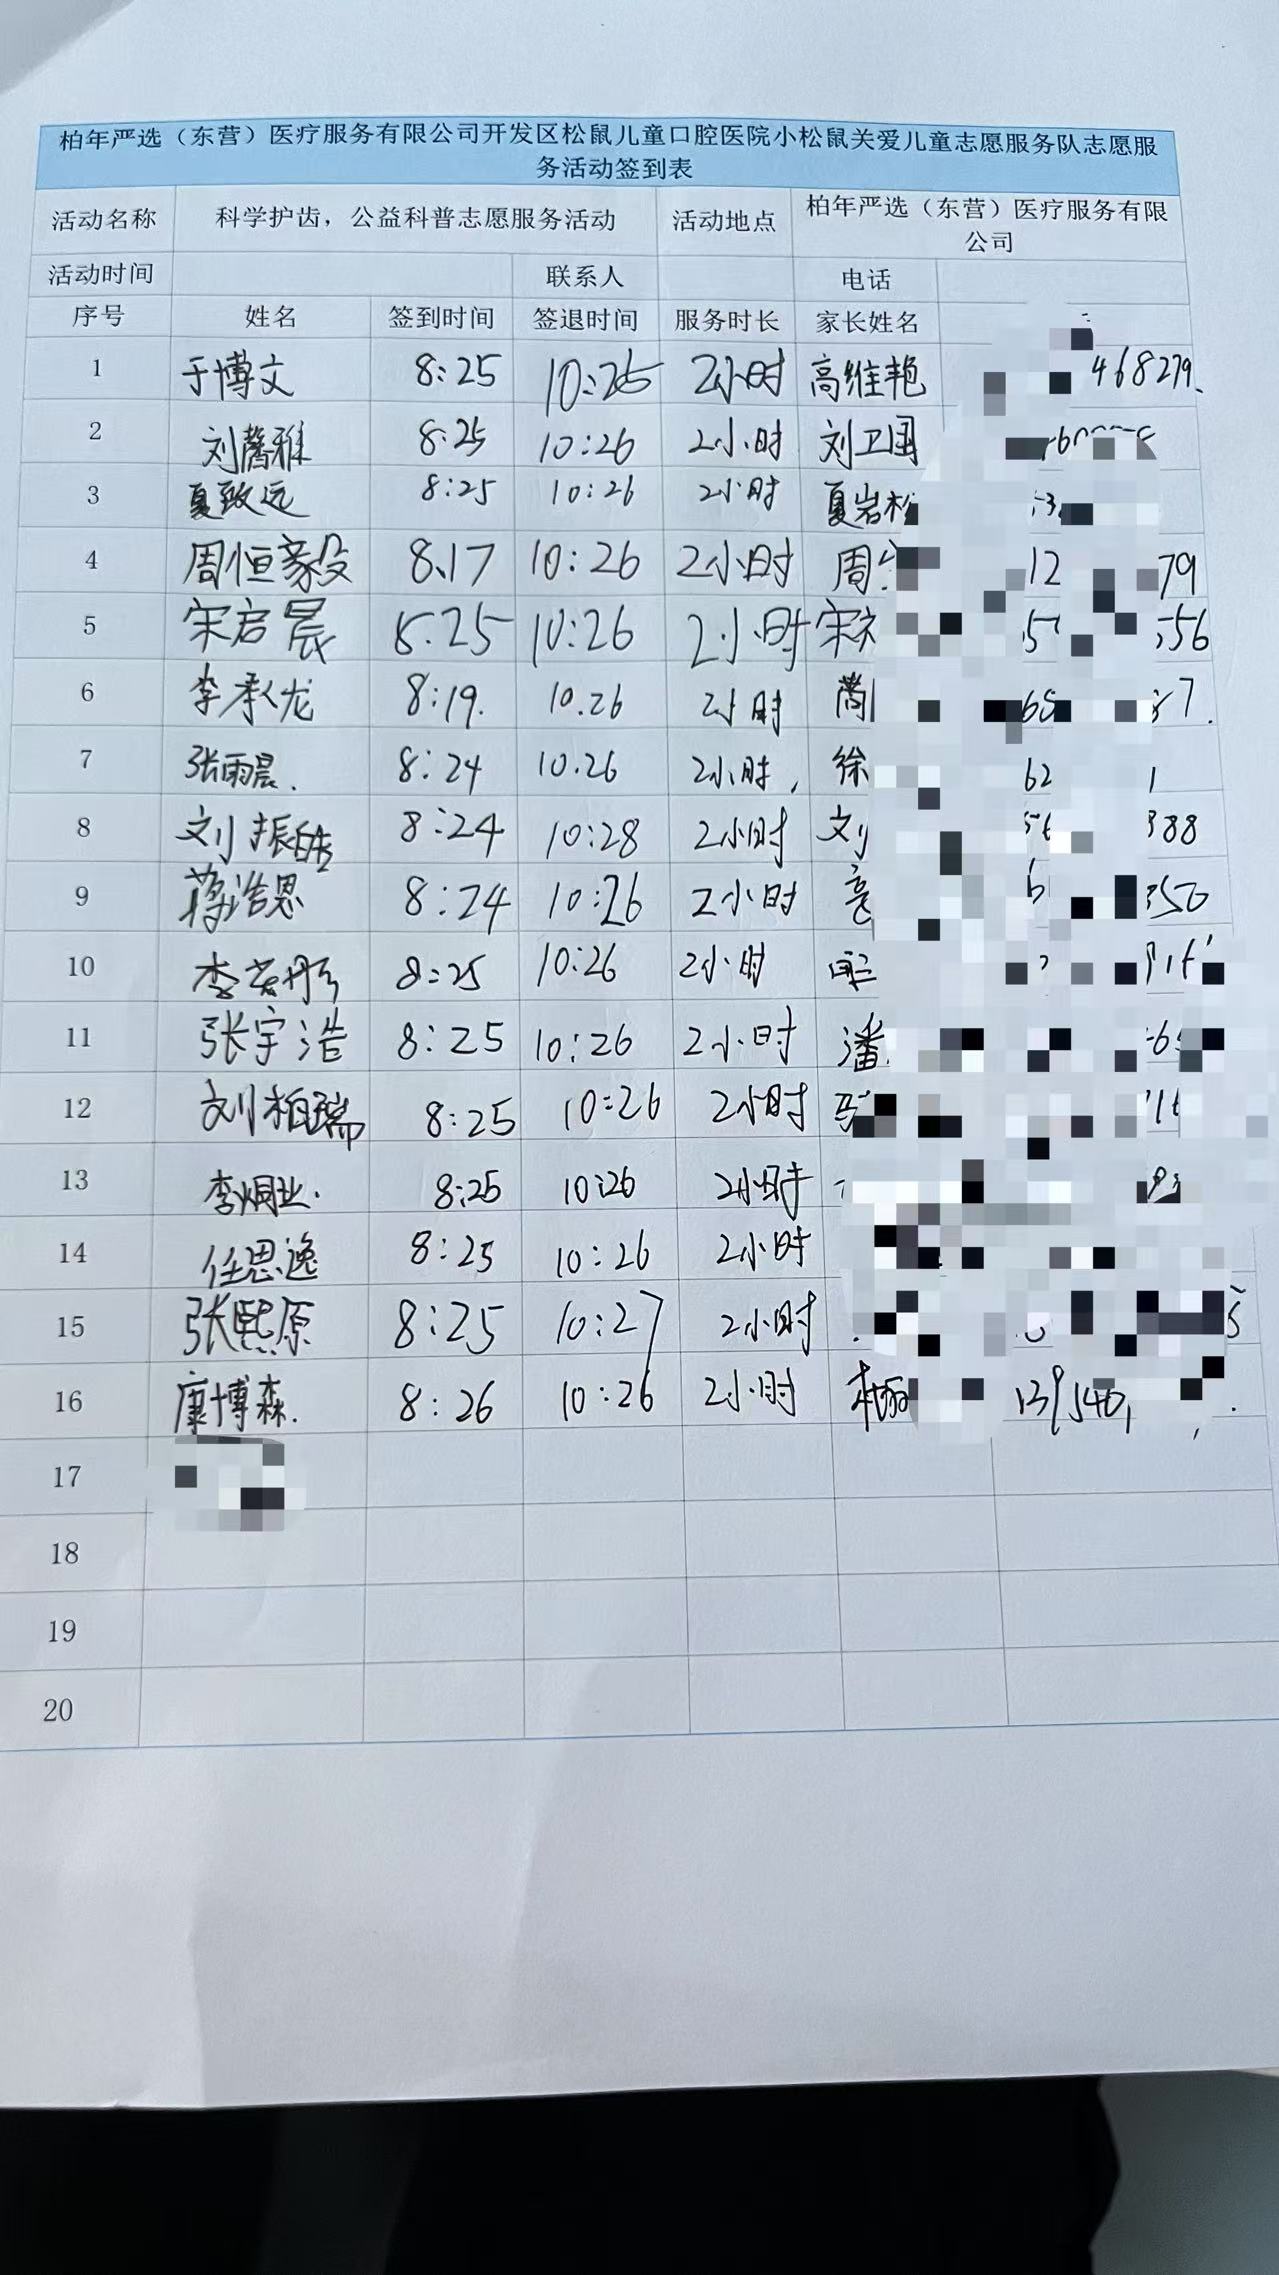 柏年严选（东营）医疗服务有限公司开发区松鼠儿童口腔医院小松鼠关爱儿童志愿服务队志愿服
务活动签到表
活动名称 科学护齿，公益科普志愿服务活动 活动地点 柏年严选（东营）医疗服务有限
公司
活动时间 联系人 电话
序号 姓名 签到时间 签退时间 服务时长 家长姓名
1 于博文 8:25 10:25 2小时 高维艳 468279.
2 刘馨雅 8:25 10:26 2小时 刘卫国
3 夏致远 8:25 10:26 2小时 夏岩松
4 周恒毅 8.17 10:26 2小时 周 12 79
5 宋启晨 8.25 10:26 2小时 宋 556
6 李承龙 8:19. 10.26 2小时 65 7.
7 张雨晨. 8:24 10.26 2小时, 徐 62 1
8 刘振皓 8:24 10:28 2小时 刘 388
9 蒋浩恩 8:24 10:26 2小时 350
10 李 8:25 10:26 2小时
11 张宇浩 8:25 10:26 2小时 潘
12 刘柏瑞 8:25 10:26 2小时
13 李炯业. 8:25 10:26 2小时
14 任思逸 8:25 10:26 2小时
15 张熙原 8:25 10:27 2小时 5
16 康博森. 8:26 10:26 2小时 139540
17
18
19
20